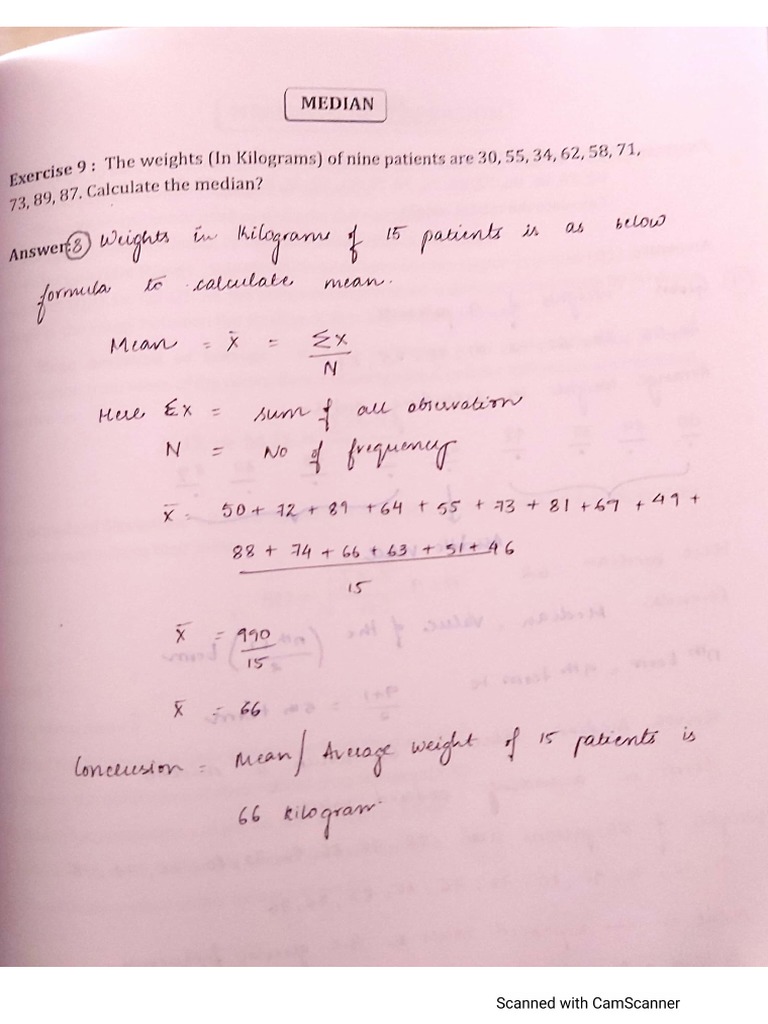 MEDIAN
Exercise 9 : The weights (In Kilograms) of nine patients are 30, 55, 34, 62, 58, 71,
73, 89, 87. Calculate the median?
Answer: 8 Weights in Kilograms of 15 patients is as below
formula to calculate mean.
Mean = x̄ = Σx
N
Here Σx = sum of all observation
N = No of frequency
x̄ = 50 + 72 + 89 + 64 + 55 + 73 + 81 + 67 + 49 +
88 + 74 + 66 + 63 + 51 + 46
15
x̄ = 990
15
x̄ = 66
Conclusion = Mean/ Average weight of 15 patients is
66 kilogram.
Scanned with CamScanner